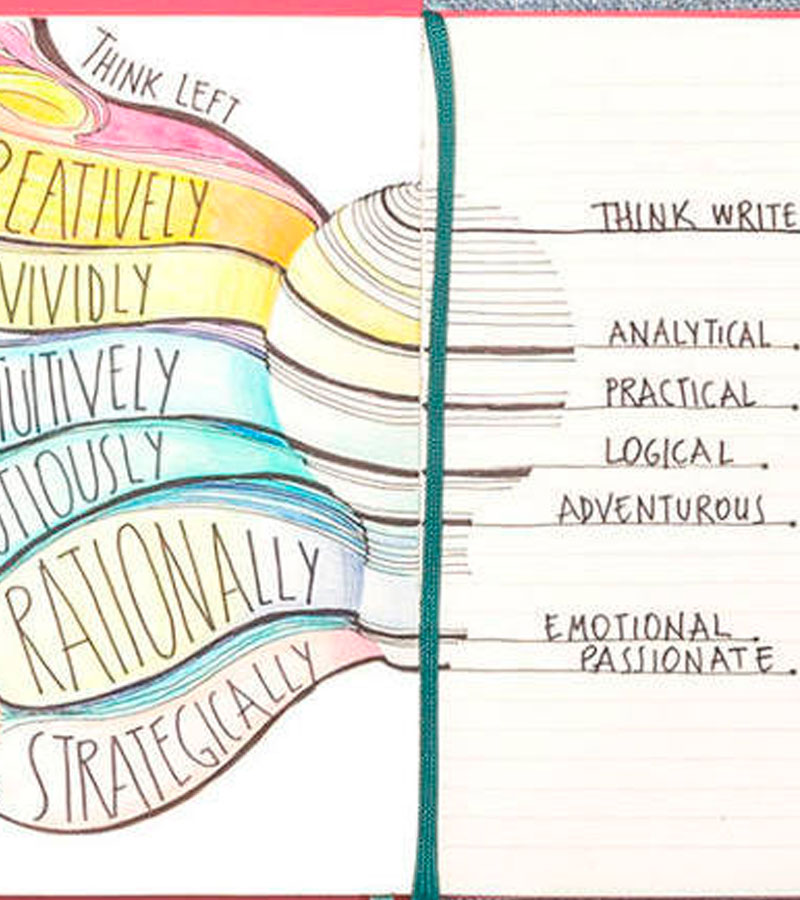 THINK LEFT
REATIVELY
VIVIDLY
TUITIVELY
TIOUSLY
RATIONALLY
STRATEGICALLY
THINK WRITE
ANALYTICAL
PRACTICAL
LOGICAL
ADVENTUROUS
EMOTIONAL
PASSIONATE